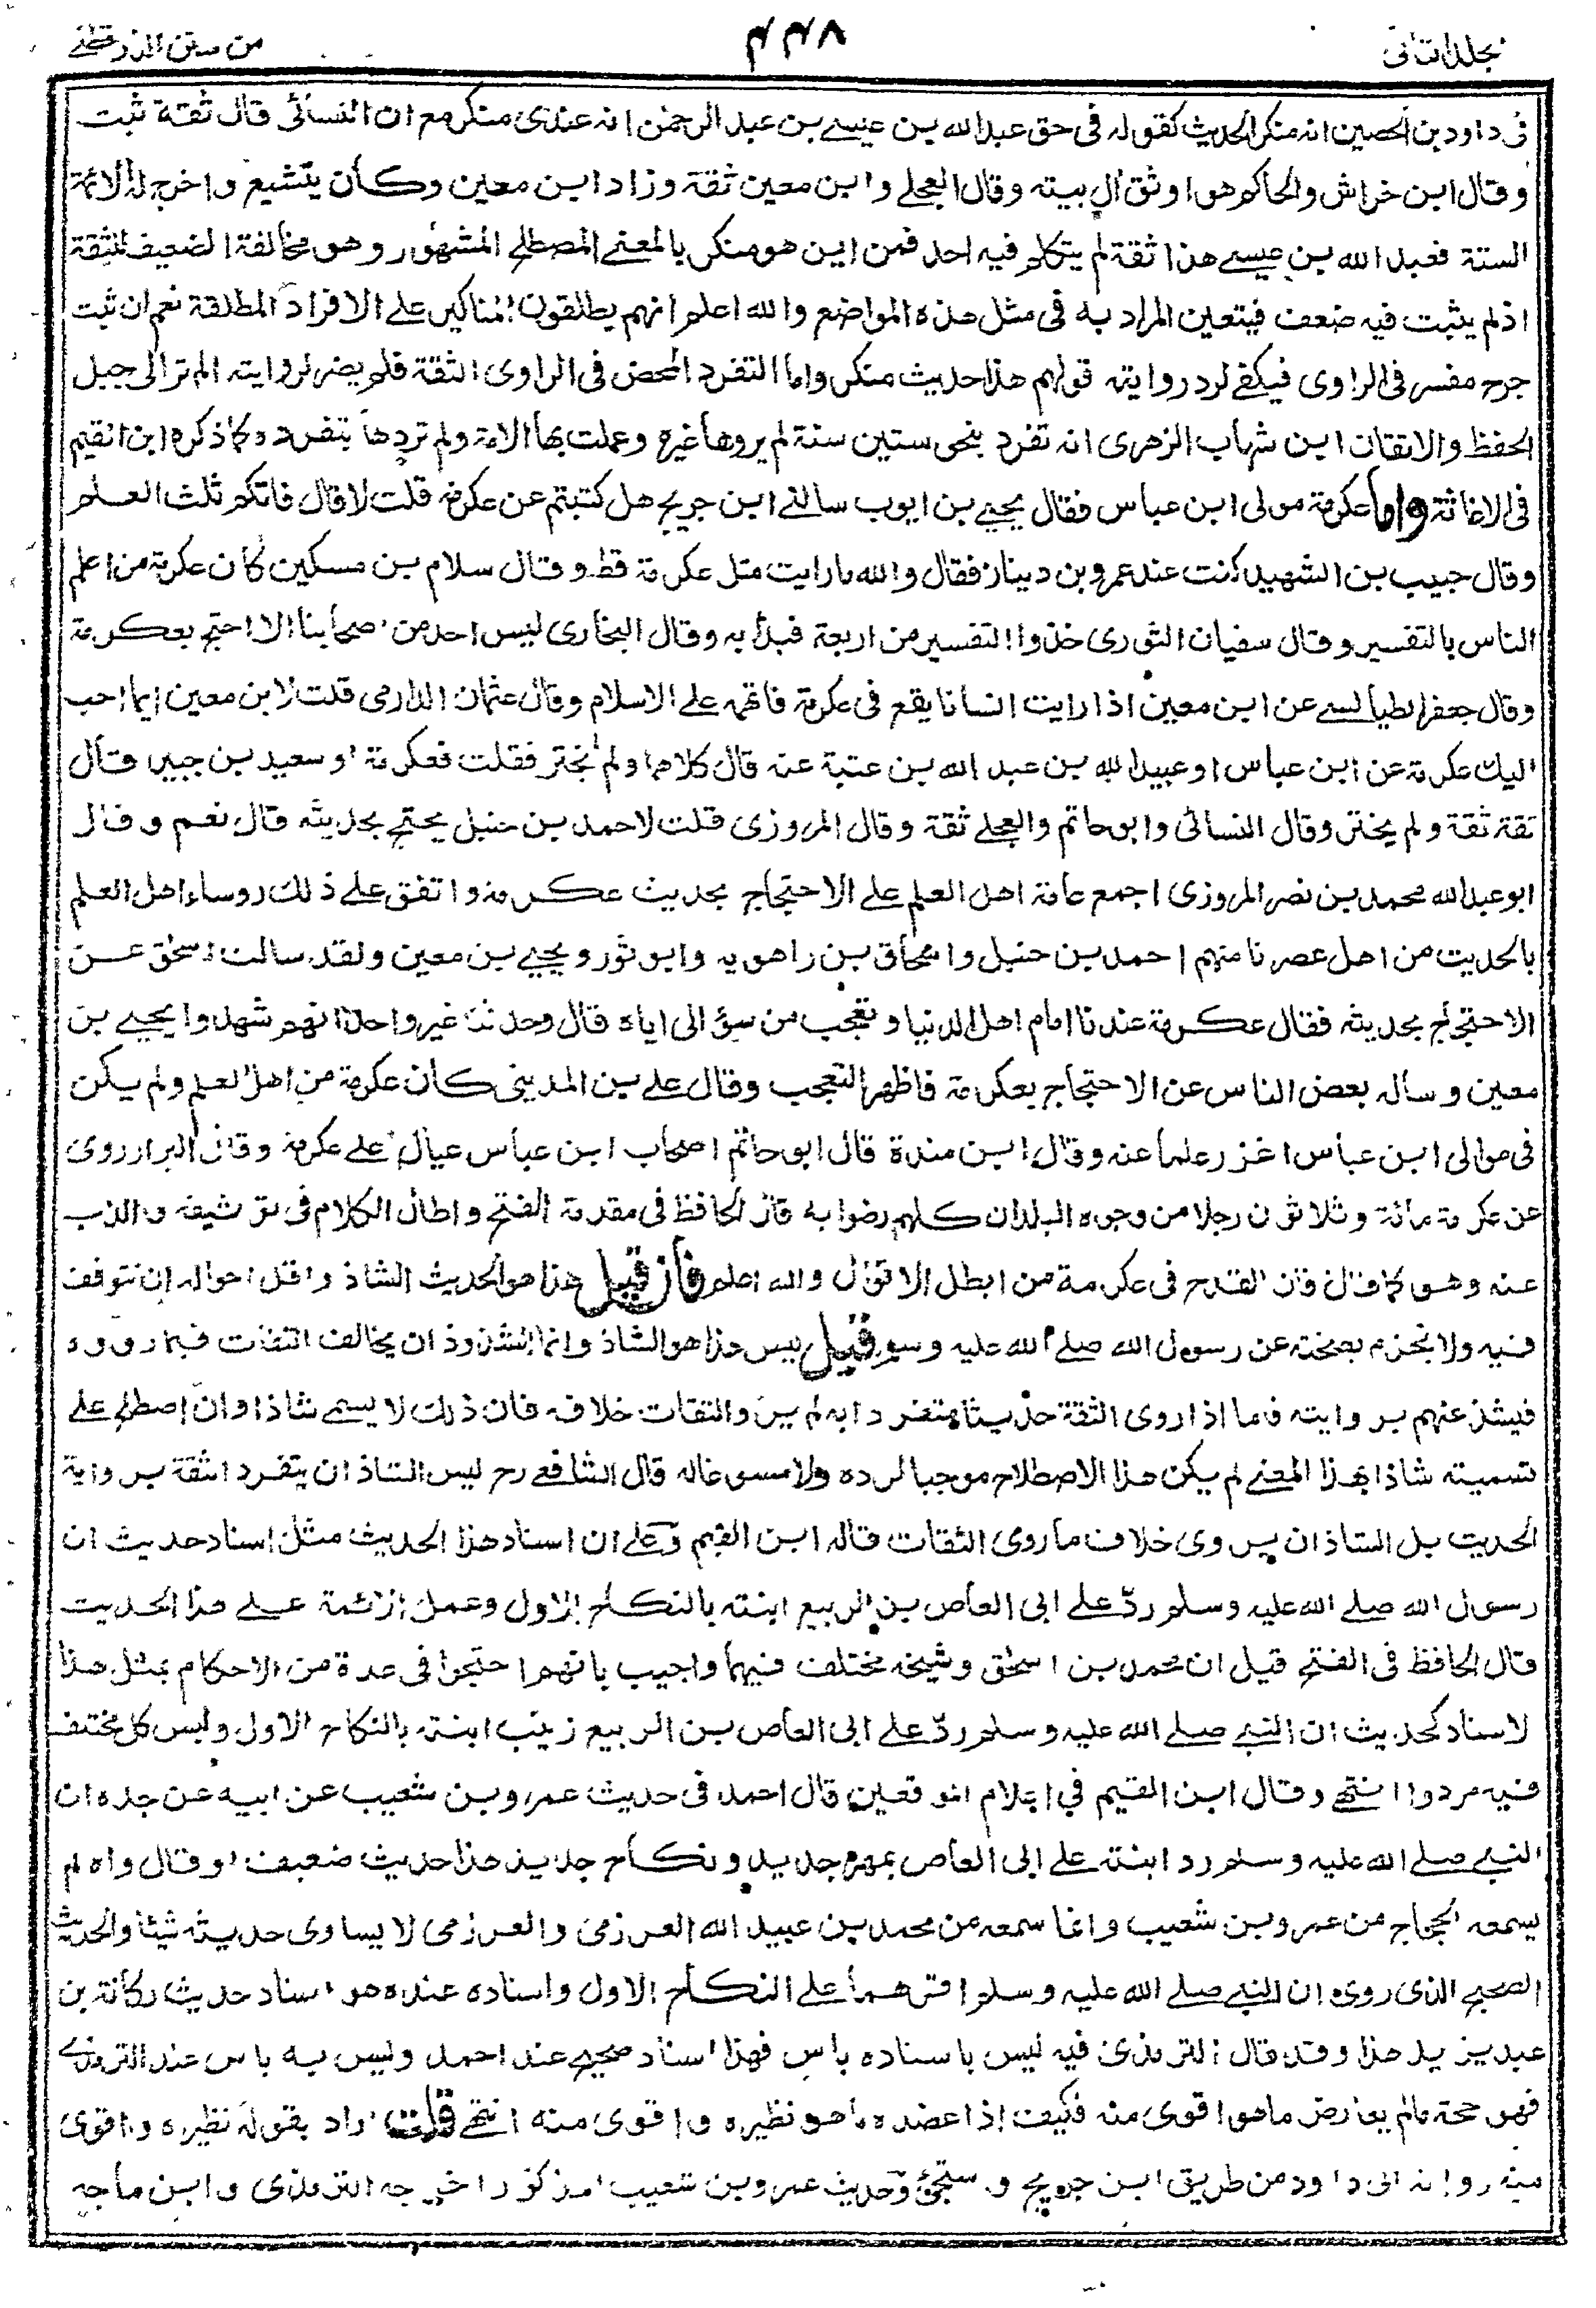 جلد الثانى
٤٤٨
من سنن الدارقطنے
فى داود بن الحصين انه منكر الحديث كقوله فى حق عبد الله بن عيسے بن عبد الرحمٰن انه عندى منكر مع ان النسائى قال ثقة ثبت
وقال ابن خراش والحاكم هو اوثق ال بيته وقال العجلے وابن معين ثقة وزاد ابن معين وكان يتشيع واخرج له الائمة
الستة فعبد الله بن عيسے هذا ثقة لم يتكلم فيه احد فمن اين هو منكر بالمعنے المصطلح المشهور وهو مخالفة الضعيف للثقة
اذ لم يثبت فيه ضعف فيتعين المراد به فى مثل هذه المواضع والله اعلم انهم يطلقون المناكير علے الافراد المطلقة نعم ان ثبت
جرح مفسر فى الراوى فيكفے لرد روايته قولهم هذا حديث منكر واما التفرد المحض فى الراوى الثقة فلم يضر لروايته الم تر الى جبل
الحفظ والاتقان ابن شهاب الزهرى انه تفرد بنحو ستين سنة لم يروها غيره وعملت بها الامة ولم تردها بتفرده كما ذكره ابن القيم
فى الاغاثة واما عكرمة مولى ابن عباس فقال يحيے بن ايوب سالنے ابن جريج هل كتبتم عن عكرمة قلت لا قال فاتكم ثلث العلم
وقال حبيب بن الشهيد كنت عند عمرو بن دينار فقال والله ما رايت مثل عكرمة قط وقال سلام بن مسكين كان عكرمة من اعلم
الناس بالتفسير وقال سفيان الثورى خذوا التفسير من اربعة فبدأ به وقال البخارى ليس احد من اصحابنا الا احتج بعكرمة
وقال جعفر الطيالسے عن ابن معين اذا رايت انسانا يقع فى عكرمة فاتهمه علے الاسلام وقال عثمان الدارمى قلت لابن معين ايما احب
اليك عكرمة عن ابن عباس او عبيد الله بن عبد الله بن عتبة عنه قال كلاهما ولم يختر فقلت فعكرمة او سعيد بن جبير قال
ثقة ثقة ولم يختر وقال النسائى وابو حاتم والعجلے ثقة وقال المروزى قلت لاحمد بن حنبل يحتج بحديثه قال نعم وقال
ابو عبد الله محمد بن نصر المروزى اجمع عامة اهل العلم علے الاحتجاج بحديث عكرمة واتفق علے ذلك روساء اهل العلم
بالحديث من اهل عصرنا منهم احمد بن حنبل واسحاق بن راهويه وابو ثور ويحيے بن معين ولقد سالت اسحق عن
الاحتجاج بحديثه فقال عكرمة عندنا امام اهل الدنيا وتعجب من سؤالى اياه قال وحدثنا غير واحد انهم شهدوا يحيے بن
معين وساله بعض الناس عن الاحتجاج بعكرمة فاظهر التعجب وقال علے بن المدينى كان عكرمة من اهل العلم ولم يكن
فى موالى ابن عباس اغزر علما عنه وقال ابن مندة قال ابو حاتم اصحاب ابن عباس عيال علے عكرمة وقال البزار روى
عن عكرمة مائة وثلاثون رجلا من وجوه البلدان كلهم رضوا به قال الحافظ فى مقدمة الفتح واطال الكلام فى توثيقه والذب
عنه وهو كما قال فان القدح فى عكرمة من ابطل الاقوال والله اعلم فان قيل هذا هو الحديث الشاذ واقل احواله ان نتوقف
فيه ولا نجزم بصحته عن رسول الله صلے الله عليه وسلم قيل ليس هذا هو الشاذ وانما الشذوذ ان يخالف الثقات فيما رووه
فيشذ عنهم بروايته فاما اذا روى الثقة حديثا متفردا به لم يرو الثقات خلافه فان ذلك لا يسمے شاذا وان اصطلح علے
تسميته شاذا بهذا المعنے لم يكن هذا الاصطلاح موجبا لرده ولا مسوغا له قال الشافعے رح ليس الشاذ ان يتفرد الثقة برواية
الحديث بل الشاذ ان يروى خلاف ما روى الثقات قاله ابن القيم وعلے ان اسناد هذا الحديث مثل اسناد حديث ان
رسول الله صلے الله عليه وسلم ردّ علے ابى العاص بن الربيع ابنته بالنكاح الاول وعمل الائمة علے هذا الحديث
قال الحافظ فى الفتح قيل ان محمد بن اسحق وشيخه مختلف فيهما واجيب بانهم احتجوا فى عدة من الاحكام بمثل هذا
لاسناد كحديث ان النبے صلے الله عليه وسلم ردّ علے ابى العاص بن الربيع زينب ابنته بالنكاح الاول وليس كل مختلف
فيه مردودا انتهے وقال ابن القيم في اعلام الموقعين قال احمد فى حديث عمرو بن شعيب عن ابيه عن جده ان
النبے صلے الله عليه وسلم رد ابنته علے ابى العاص بمهر جديد ونكاح جديد هذا حديث ضعيف او قال واه لم
يسمعه الحجاج من عمرو بن شعيب وانما سمعه من محمد بن عبيد الله العرزمى والعرزمى لا يساوى حديثه شيئا والحديث
الصحيح الذى روى ان النبے صلے الله عليه وسلم اقرهما علے النكاح الاول واسناده عنده هو اسناد حديث ركانة بن
عبد يزيد هذا وقد قال الترمذى فيه ليس باسناده باس فهذا اسناد صحيح عند احمد وليس به باس عند الترمذے
فهو حجة ما لم يعارض ما هو اقوى منه فكيف اذا عضده ما هو نظيره واقوى منه انتهے قلت اراد بقوله نظيره واقوى
منه رواية ابى داود من طريق ابن جريج و ستجئ وحديث عمرو بن شعيب المذكور اخرجه الترمذى وابن ماجه